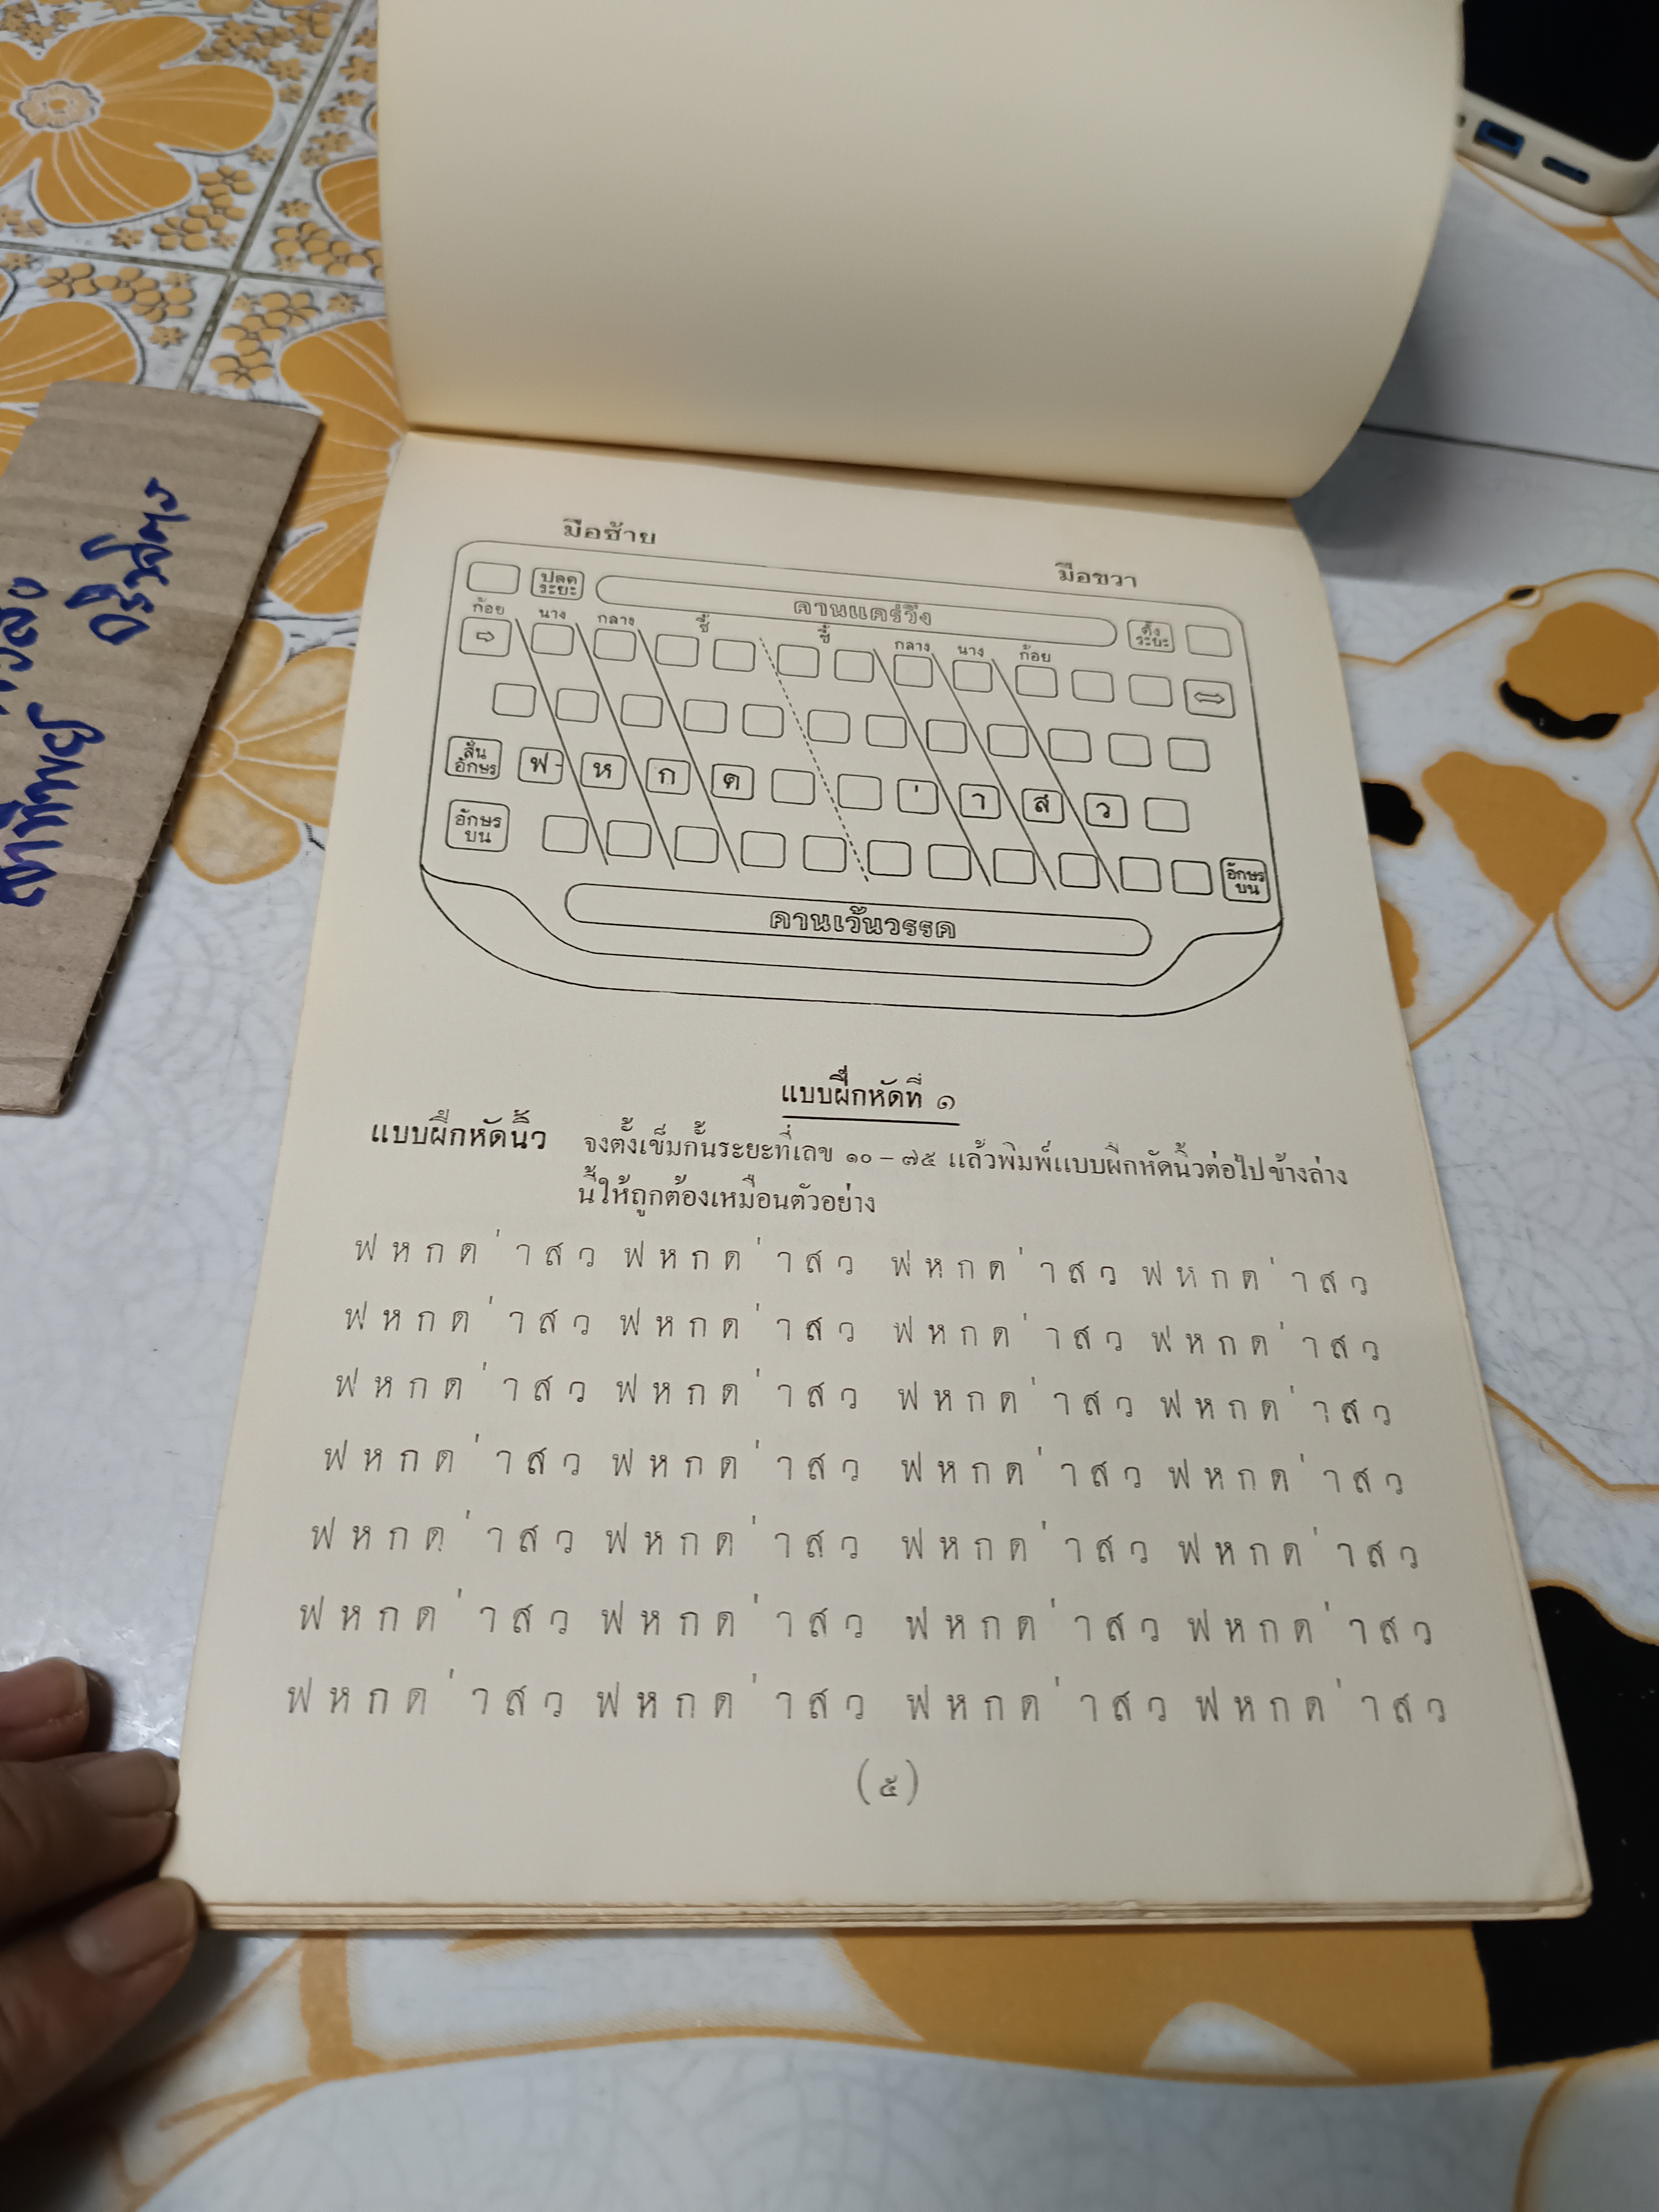 มือซ้าย
มือขวา
ปลด
ระยะ
คานแคร่วิ่ง
ตั้ง
ระยะ
ก้อย นาง กลาง ชี้ ชี้ กลาง นาง ก้อย
ลั่น
อักษร
ฟ ห ก ด ่ า ส ว
อักษร
บน
อักษร
บน
คานเว้นวรรค
แบบฝึกหัดที่ ๑
แบบฝึกหัดนิ้ว จงตั้งเข็มกั้นระยะที่เลข ๑๐ – ๗๕ แล้วพิมพ์แบบฝึกหัดนิ้วต่อไปข้างล่าง
นี้ให้ถูกต้องเหมือนตัวอย่าง
ฟ ห ก ด ่ า ส ว ฟ ห ก ด ่ า ส ว ฟ ห ก ด ่ า ส ว ฟ ห ก ด ่ า ส ว
ฟ ห ก ด ่ า ส ว ฟ ห ก ด ่ า ส ว ฟ ห ก ด ่ า ส ว ฟ ห ก ด ่ า ส ว
ฟ ห ก ด ่ า ส ว ฟ ห ก ด ่ า ส ว ฟ ห ก ด ่ า ส ว ฟ ห ก ด ่ า ส ว
ฟ ห ก ด ่ า ส ว ฟ ห ก ด ่ า ส ว ฟ ห ก ด ่ า ส ว ฟ ห ก ด ่ า ส ว
ฟ ห ก ด ่ า ส ว ฟ ห ก ด ่ า ส ว ฟ ห ก ด ่ า ส ว ฟ ห ก ด ่ า ส ว
ฟ ห ก ด ่ า ส ว ฟ ห ก ด ่ า ส ว ฟ ห ก ด ่ า ส ว ฟ ห ก ด ่ า ส ว
ฟ ห ก ด ่ า ส ว ฟ ห ก ด ่ า ส ว ฟ ห ก ด ่ า ส ว ฟ ห ก ด ่ า ส ว
(๕)